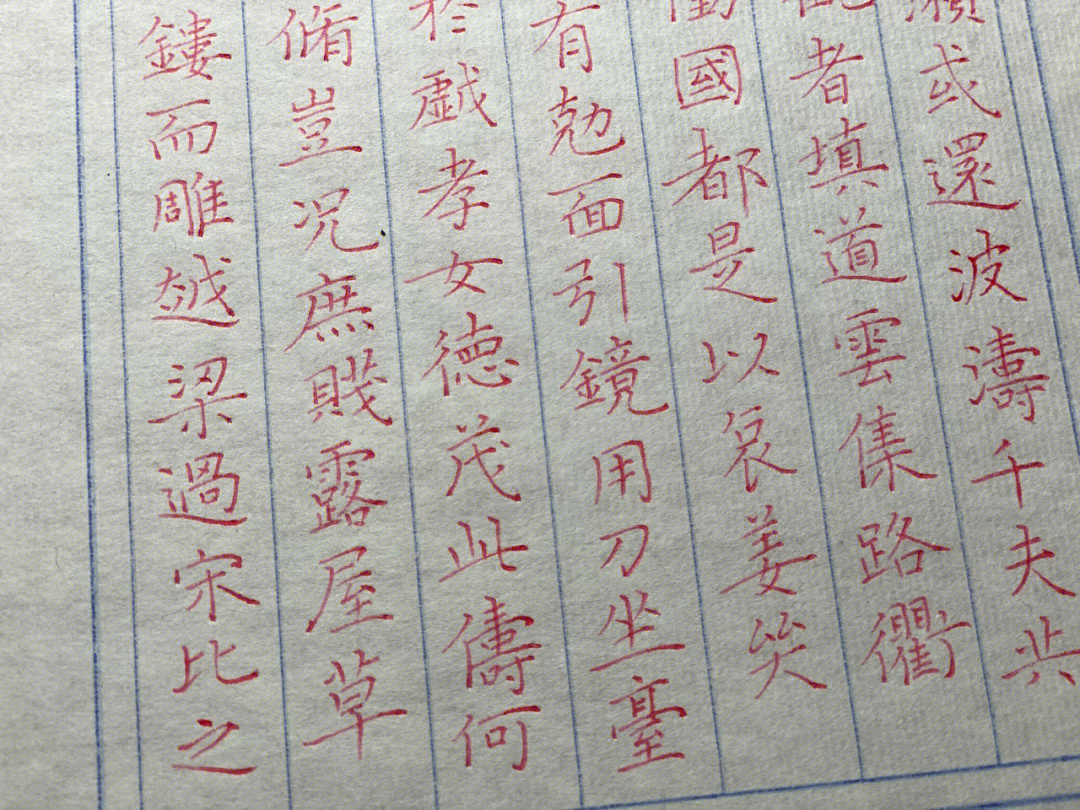 瀨或還波濤千夫共
者填道雲集路衢
國都是以哀姜哭
有勊面引鏡用刀坐臺
於戲孝女德茂此儔何
脩豈況庶賤露屋草
鏤而雕越梁過宋比之